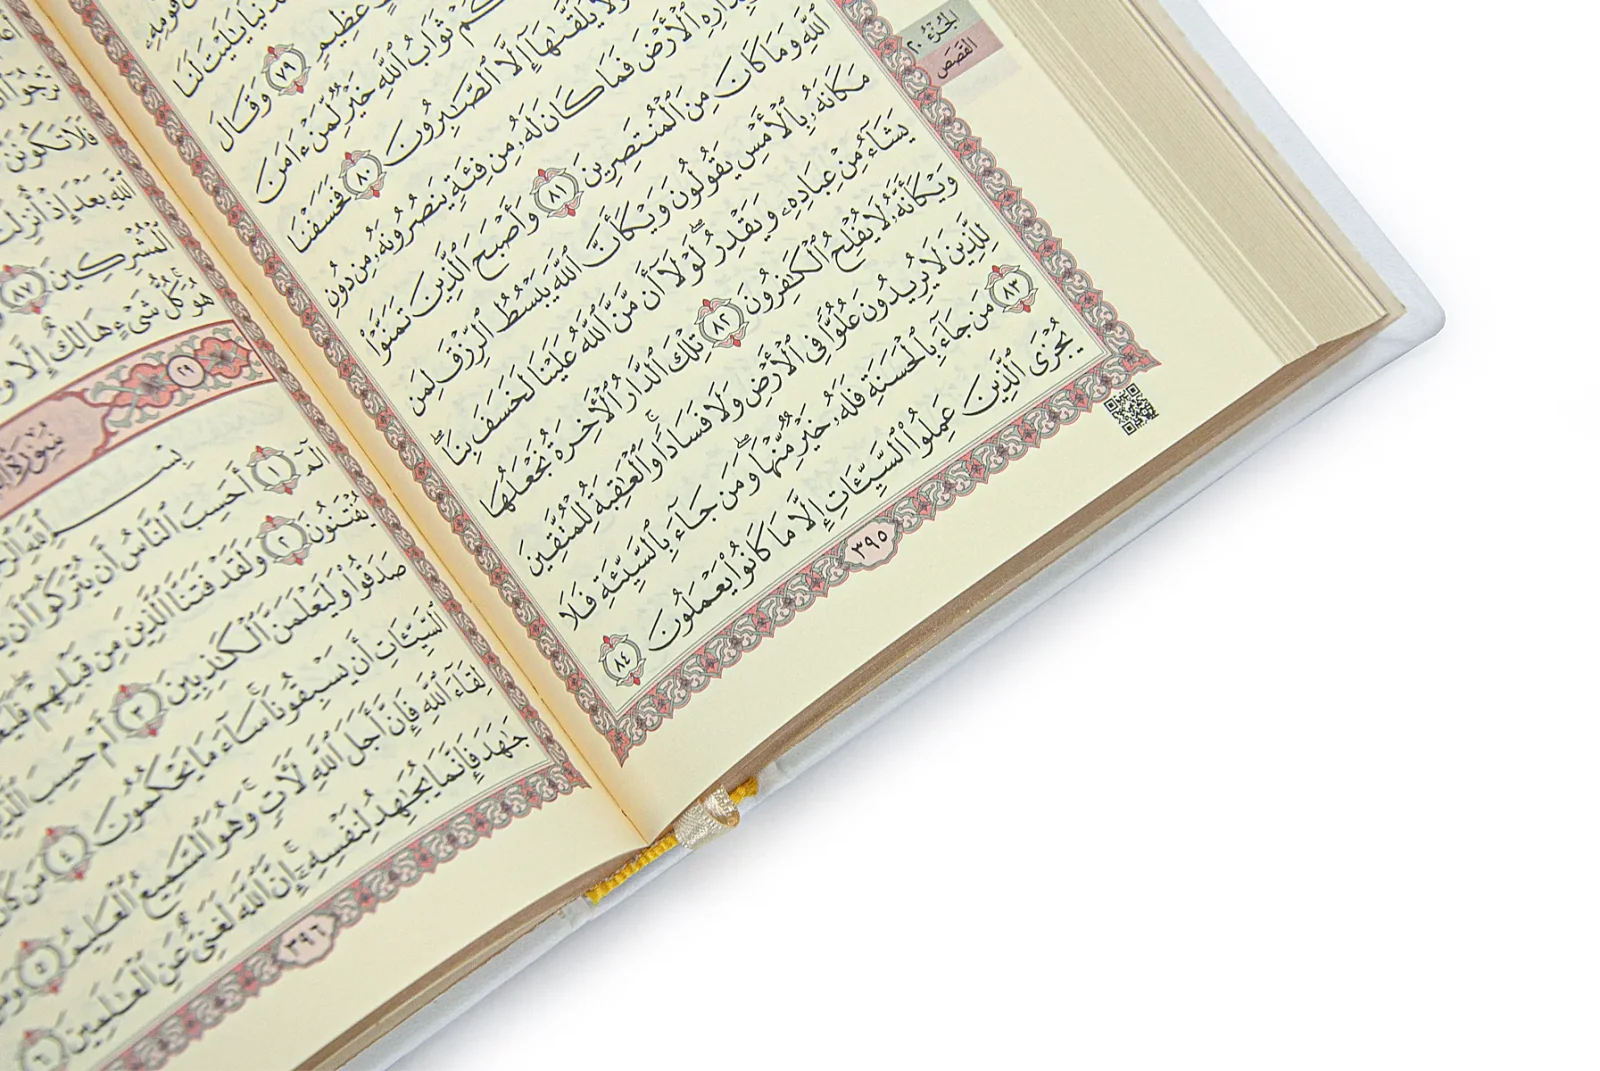 ٱلْجُزْءُ ٢٠
القَصَص
قَوْمِهِۦ
يَٰلَيْتَ لَنَا
عَظِيمٍ ٧٩ وَقَالَ
ثَوَابُ ٱللَّهِ خَيْرٌ لِّمَنْ ءَامَنَ
وَلَا يُلَقَّىٰهَآ إِلَّا ٱلصَّٰبِرُونَ ٨٠ فَخَسَفْنَا
وَبِدَارِهِ ٱلْأَرْضَ فَمَا كَانَ لَهُۥ مِن فِئَةٍ يَنصُرُونَهُۥ مِن دُونِ
ٱللَّهِ وَمَا كَانَ مِنَ ٱلْمُنتَصِرِينَ ٨١ وَأَصْبَحَ ٱلَّذِينَ تَمَنَّوْا۟
مَكَانَهُۥ بِٱلْأَمْسِ يَقُولُونَ وَيْكَأَنَّ ٱللَّهَ يَبْسُطُ ٱلرِّزْقَ لِمَن
يَشَآءُ مِنْ عِبَادِهِۦ وَيَقْدِرُ ۖ لَوْلَآ أَن مَّنَّ ٱللَّهُ عَلَيْنَا لَخَسَفَ بِنَا ۖ
وَيْكَأَنَّهُۥ لَا يُفْلِحُ ٱلْكَٰفِرُونَ ٨٢ تِلْكَ ٱلدَّارُ ٱلْأَخِرَةُ نَجْعَلُهَا
لِلَّذِينَ لَا يُرِيدُونَ عُلُوًّا فِى ٱلْأَرْضِ وَلَا فَسَادًا ۚ وَٱلْعَٰقِبَةُ لِلْمُتَّقِينَ
٨٣ مَن جَآءَ بِٱلْحَسَنَةِ فَلَهُۥ خَيْرٌ مِّنْهَا ۖ وَمَن جَآءَ بِٱلسَّيِّئَةِ فَلَا
يُجْزَى ٱلَّذِينَ عَمِلُوا۟ ٱلسَّيِّـَٔاتِ إِلَّا مَا كَانُوا۟ يَعْمَلُونَ ٨٤
٣٩٥
تَرْجُوٓا۟
فَلَا تَكُونَنَّ
ٱللَّهِ بَعْدَ إِذْ أُنزِلَتْ
ٱلْمُشْرِكِينَ ٨٧
هُوَ ۚ كُلُّ شَىْءٍ هَالِكٌ إِلَّا
سُورَةُ
٢٩
بِسْمِ ٱللَّهِ
الٓمٓ ١ أَحَسِبَ ٱلنَّاسُ أَن يُتْرَكُوٓا۟ أَن
يُفْتَنُونَ ٢ وَلَقَدْ فَتَنَّا ٱلَّذِينَ مِن قَبْلِهِمْ ۖ
صَدَقُوا۟ وَلَيَعْلَمَنَّ ٱلْكَٰذِبِينَ ٣ أَمْ حَسِبَ
ٱلسَّيِّـَٔاتِ أَن يَسْبِقُونَا ۚ سَآءَ مَا يَحْكُمُونَ ٤ مَن كَانَ
لِقَآءَ ٱللَّهِ فَإِنَّ أَجَلَ ٱللَّهِ لَـَٔاتٍ ۚ وَهُوَ ٱلسَّمِيعُ ٱلْعَلِيمُ ٥
جَٰهَدَ فَإِنَّمَا يُجَٰهِدُ لِنَفْسِهِۦٓ ۚ إِنَّ ٱللَّهَ لَغَنِىٌّ عَنِ ٱلْعَٰلَمِينَ ٦
٣٩٦